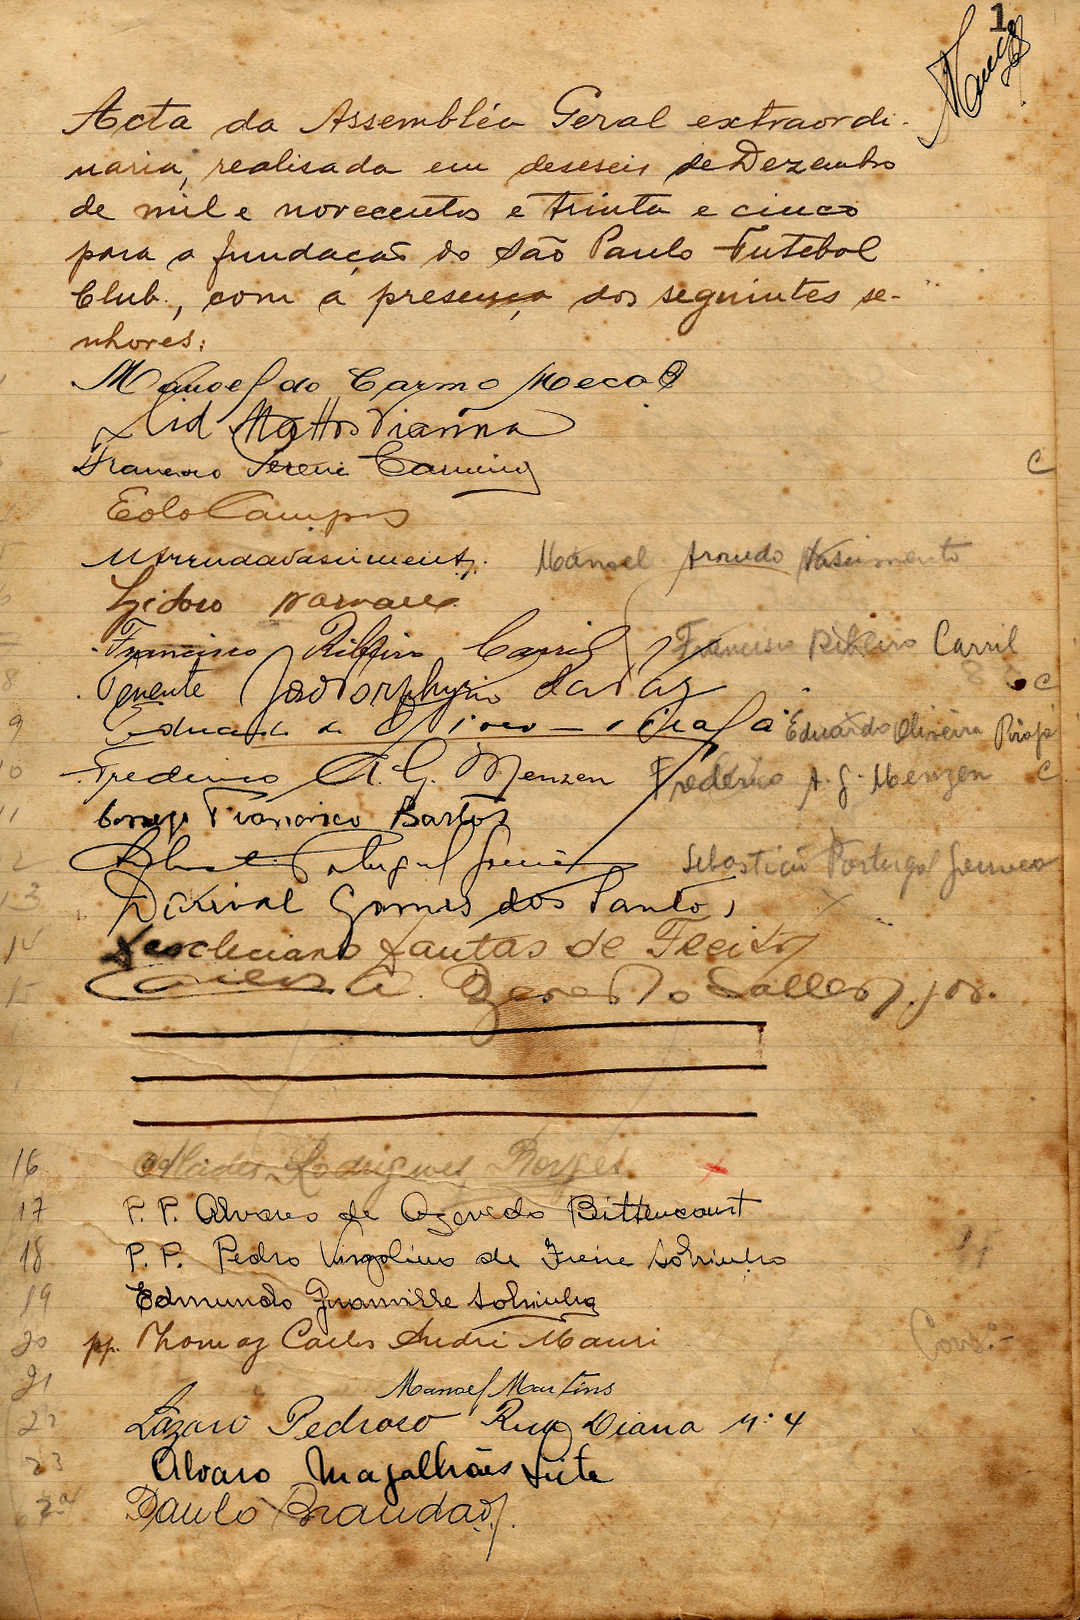 1
Acta da Assembléa Geral extraordi-
naria, realisada em deseseis de Dezembro
de mil e novecentos e trinta e cinco
para a fundação do São Paulo Futebol
Club., com a presença dos seguintes se-
nhores:
Manoel do Carmo Meca
Cid Mattos Vianna
Francisco Pereira Carneiro
Eolo Campos
M Arruda Nascimento. Manoel Arruda Nascimento
Izidoro
Francisco Ribeiro Carril Francisco Ribeiro Carril
8 Tenente José Porphyrio da Paz C
9 Eduardo de Oliveira Pirajá Eduardo Oliveira Piraja
10 Frederico A. G. Menzen Frederico A. G. Menzen C
11 Conego Francisco Bastos
12 Sebastião Portugal Gouvea
13 Dorival Gomes dos Santos
14 Deocleciano Dantas de Freitas
15 Carlos A. Salles Jor.
16 Alcides Rodrigues Borges
17 P. P. Alvaro de Azevedo Bittencourt
18 P. P. Pedro Virgolino de Freire Sobrinho
19 Edmundo Sobrinho
20 pp. Thomaz Carlos André Mauri Cons:-
21 Manoel Martins
22 Lázaro Pedroso Rua Diana n: 4
23 Alvaro Magalhães Leite
24 Paulo Brandão